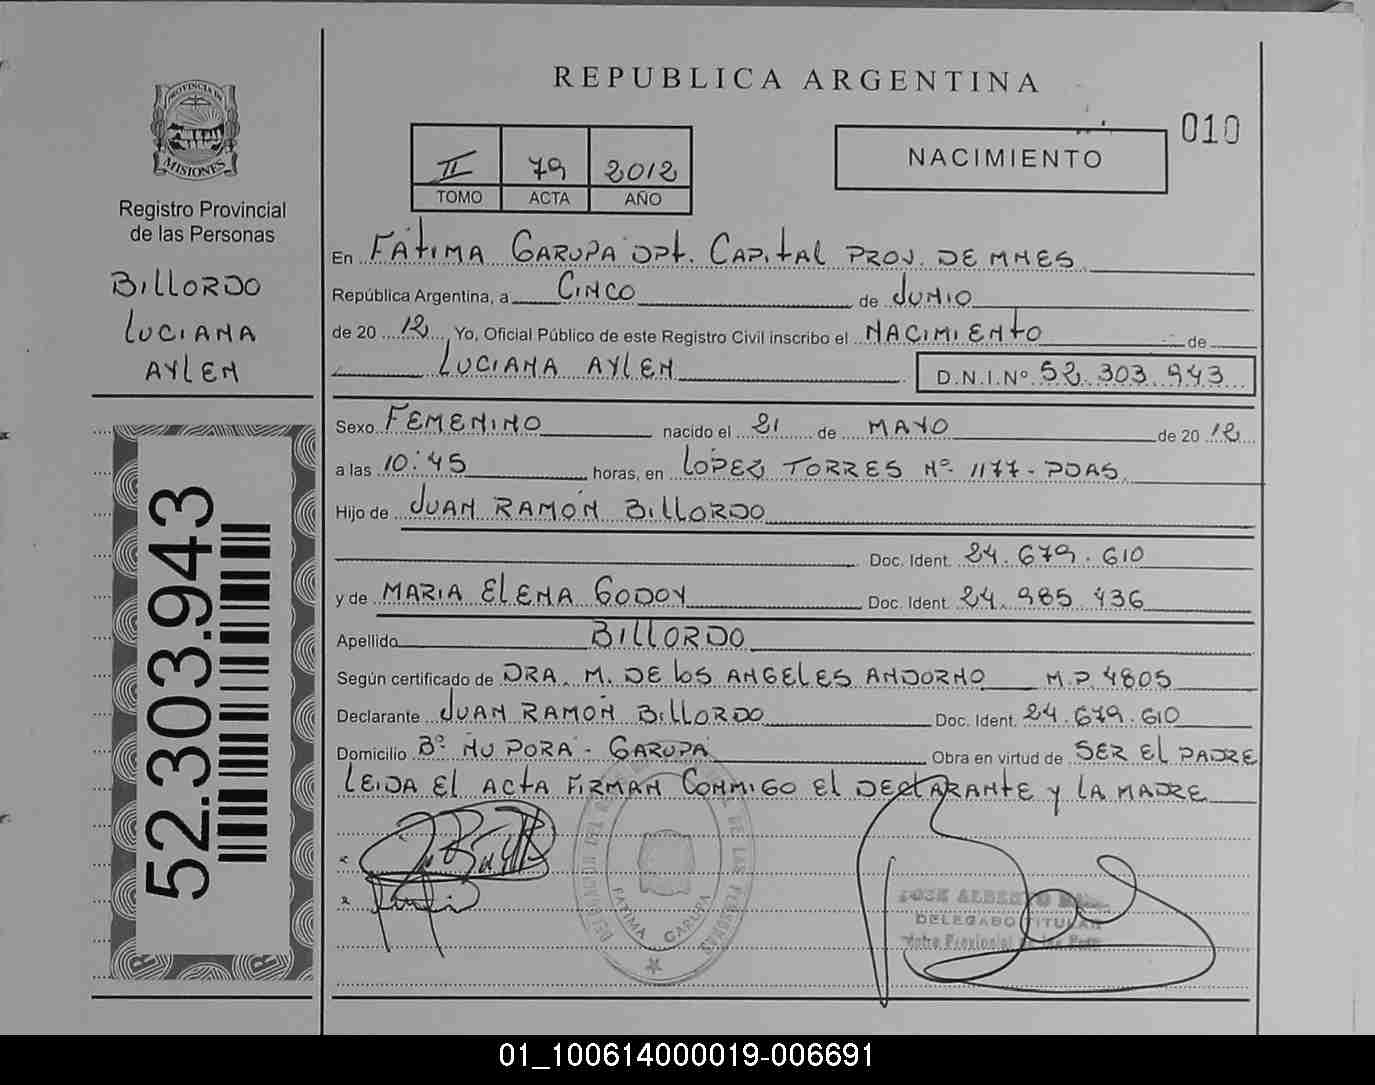 PROVINCIA DE
MISIONES
Registro Provincial
de las Personas
BILLORDO
LUCIANA
AYLEN
52.303.943
REPUBLICA ARGENTINA
010
II 79 2012
TOMO ACTA AÑO
NACIMIENTO
En FÁTIMA GARUPA DPT. CAPITAL PROV. DE MNES
República Argentina, a CINCO de JUNIO
de 20 12 Yo, Oficial Público de este Registro Civil inscribo el NACIMIENTO de
LUCIANA AYLEN D.N.I.Nº 52.303.943
Sexo FEMENINO nacido el 21 de MAYO de 20 12
a las 10:45 horas, en LÓPEZ TORRES Nº 1177 - PDAS.
Hijo de JUAN RAMÓN BILLORDO
Doc. Ident. 24.679.610
y de MARIA ELENA GODOY Doc. Ident. 24.985.436
Apellido BILLORDO
Según certificado de DRA. M. DE LOS ANGELES ANDORNO M.P. 4805
Declarante JUAN RAMÓN BILLORDO Doc. Ident. 24.679.610
Domicilio Bº ÑU PORÁ - GARUPÁ Obra en virtud de SER EL PADRE
LEIDA EL ACTA FIRMAN CONMIGO EL DECLARANTE Y LA MADRE
DE LAS PERSONAS
FATIMA GARUPA
JOSE ALBERTO
DELEGADO TITULAR
01_100614000019-006691